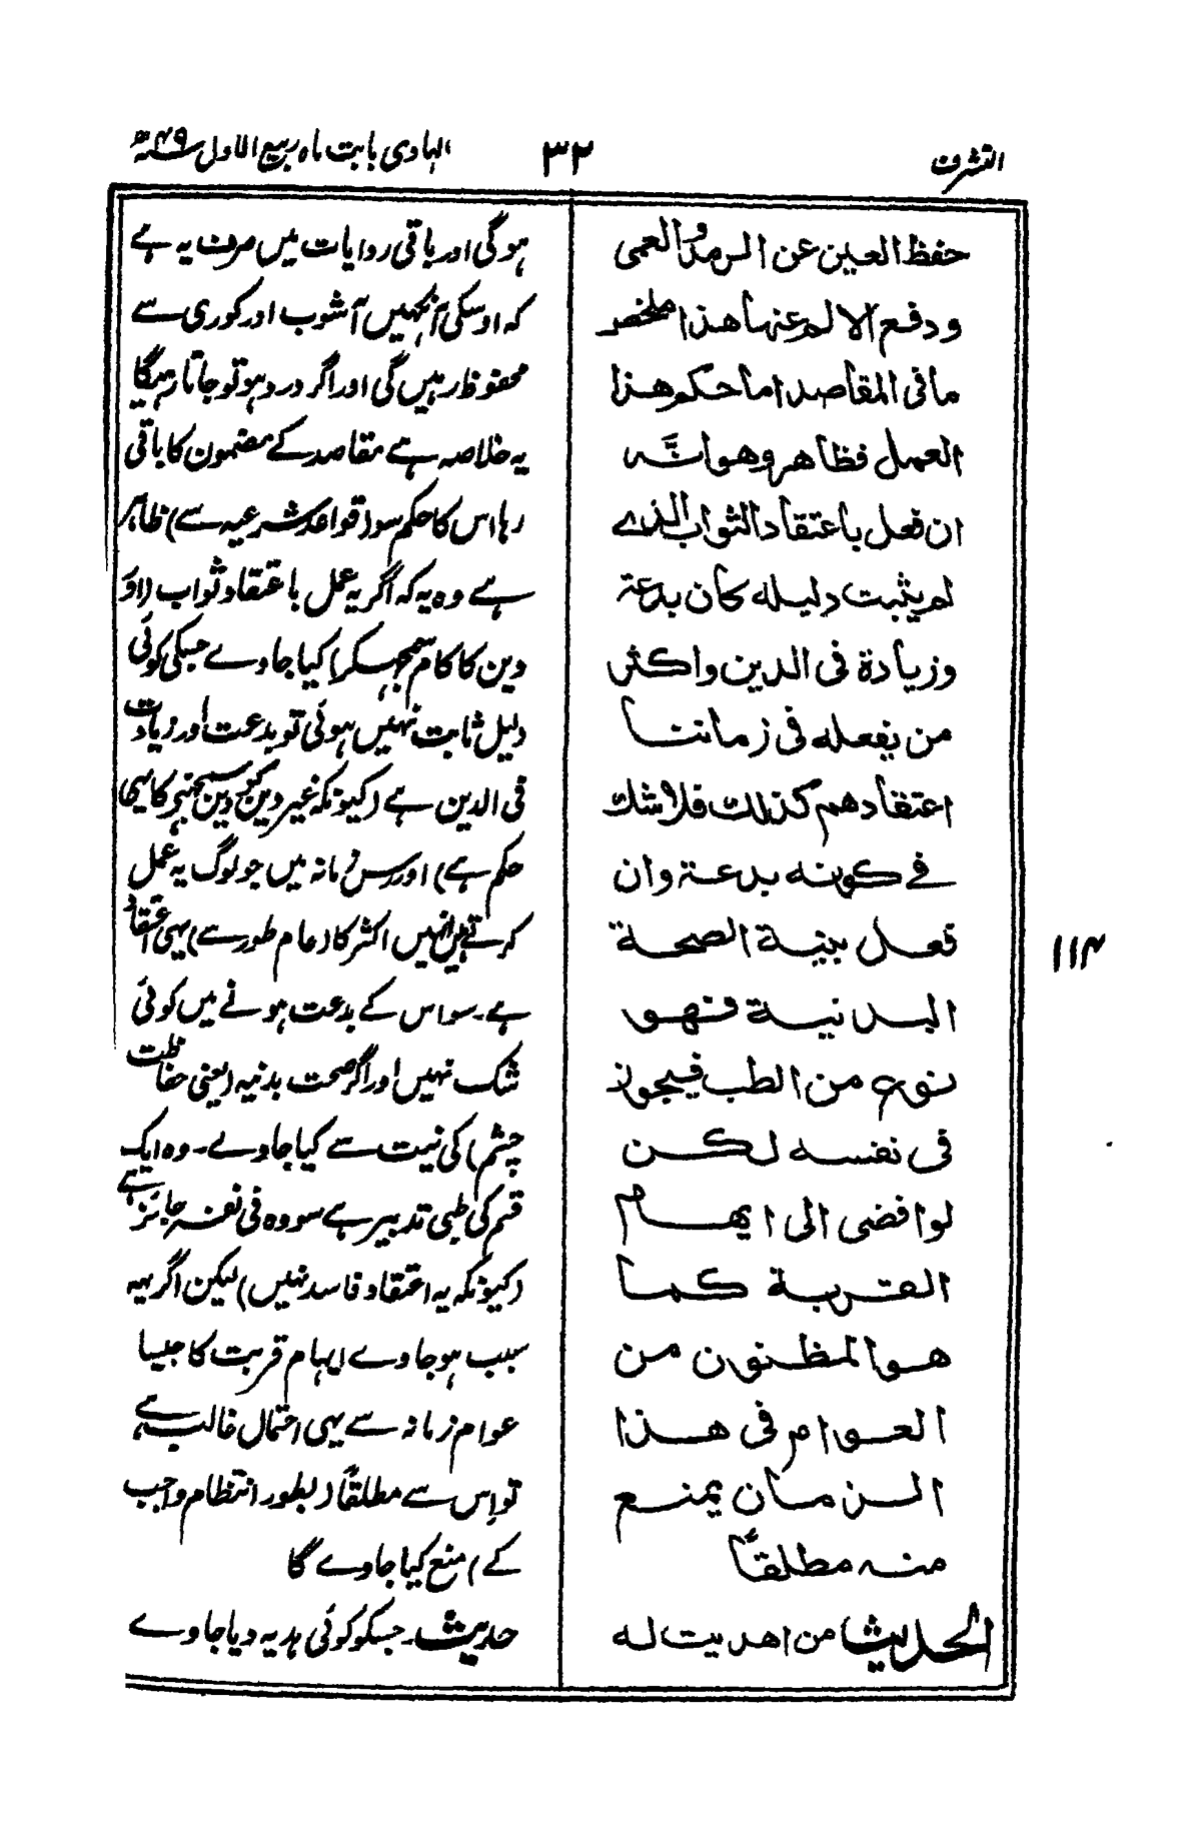 التشرف
۳۲
الہادی بابت ماہ ربیع الاول ۴۹ھ
حفظ العین عن الرمد والعمی
ودفع الالم عنہا ھذا ملخص
مافی المقاصد اما حکم ھذا
العمل فظاھر وھو انّہ
ان فعل باعتقاد الثواب الذے
لم یثبت دلیلہ کان بدعۃ
وزیادۃ فی الدین واکثر
من یفعلہ فی زماننا
اعتقادھم کذلک فلاشک
فے کونہ بدعۃ وان
فعل بنیۃ الصحۃ
البدنیۃ فھو
نوع من الطب فیجوز
فی نفسہ لکن
لوافضی الی ایھام
القربۃ کما
ھوالمظنون من
العوام فی ھذا
الزمان یمنع
منہ مطلقاً
الحدیث من اھدیت لہ
ہوگی اور باقی روایات میں صرف یہ ہے
کہ اوسکی آنکہیں آشوب اور کوری سے
محفوظ رہیں گی اور اگر درد ہو تو جاتا رہیگا
یہ خلاصہ ہے مقاصد کے مضمون کا باقی
رہا اس کا حکم سو (قواعد شرعیہ سے) ظاہر
ہے وہ یہ کہ اگر یہ عمل باعتقاد ثواب (اور
دین کا کام سمجہکر) کیا جاوے جسکی کوئی
دلیل ثابت نہیں ہوئی تو بدعت اور زیادت
فی الدین ہے (کیونکہ غیر دین کو دین سمجنہے کا یہی
حکم ہے) اور اس زمانہ میں جو لوگ یہ عمل
کرتے ہیں انہیں اکثر کا (عام طور سے) یہی اعتقاد
ہے۔ سو اس کے بدعت ہونے میں کوئی
شک نہیں اور اگر صحت بدنیہ (یعنی حفاظت
چشم) کی نیت سے کیا جاوے۔ وہ ایک
قسم کی طبی تدبیر ہے سو وہ فی نفسہ جائز ہے
(کیونکہ یہ اعتقاد فاسد نہیں) لیکن اگر یہ
سبب ہو جاوے ایہام قربت کا جیسا
عوام زمانہ سے یہی احتمال غالب ہے
تو اِس سے مطلقاً (بطور انتظام واجب
کے) منع کیا جاوے گا
حدیث۔ جسکو کوئی ہدیہ دیا جاوے
۱۱۴